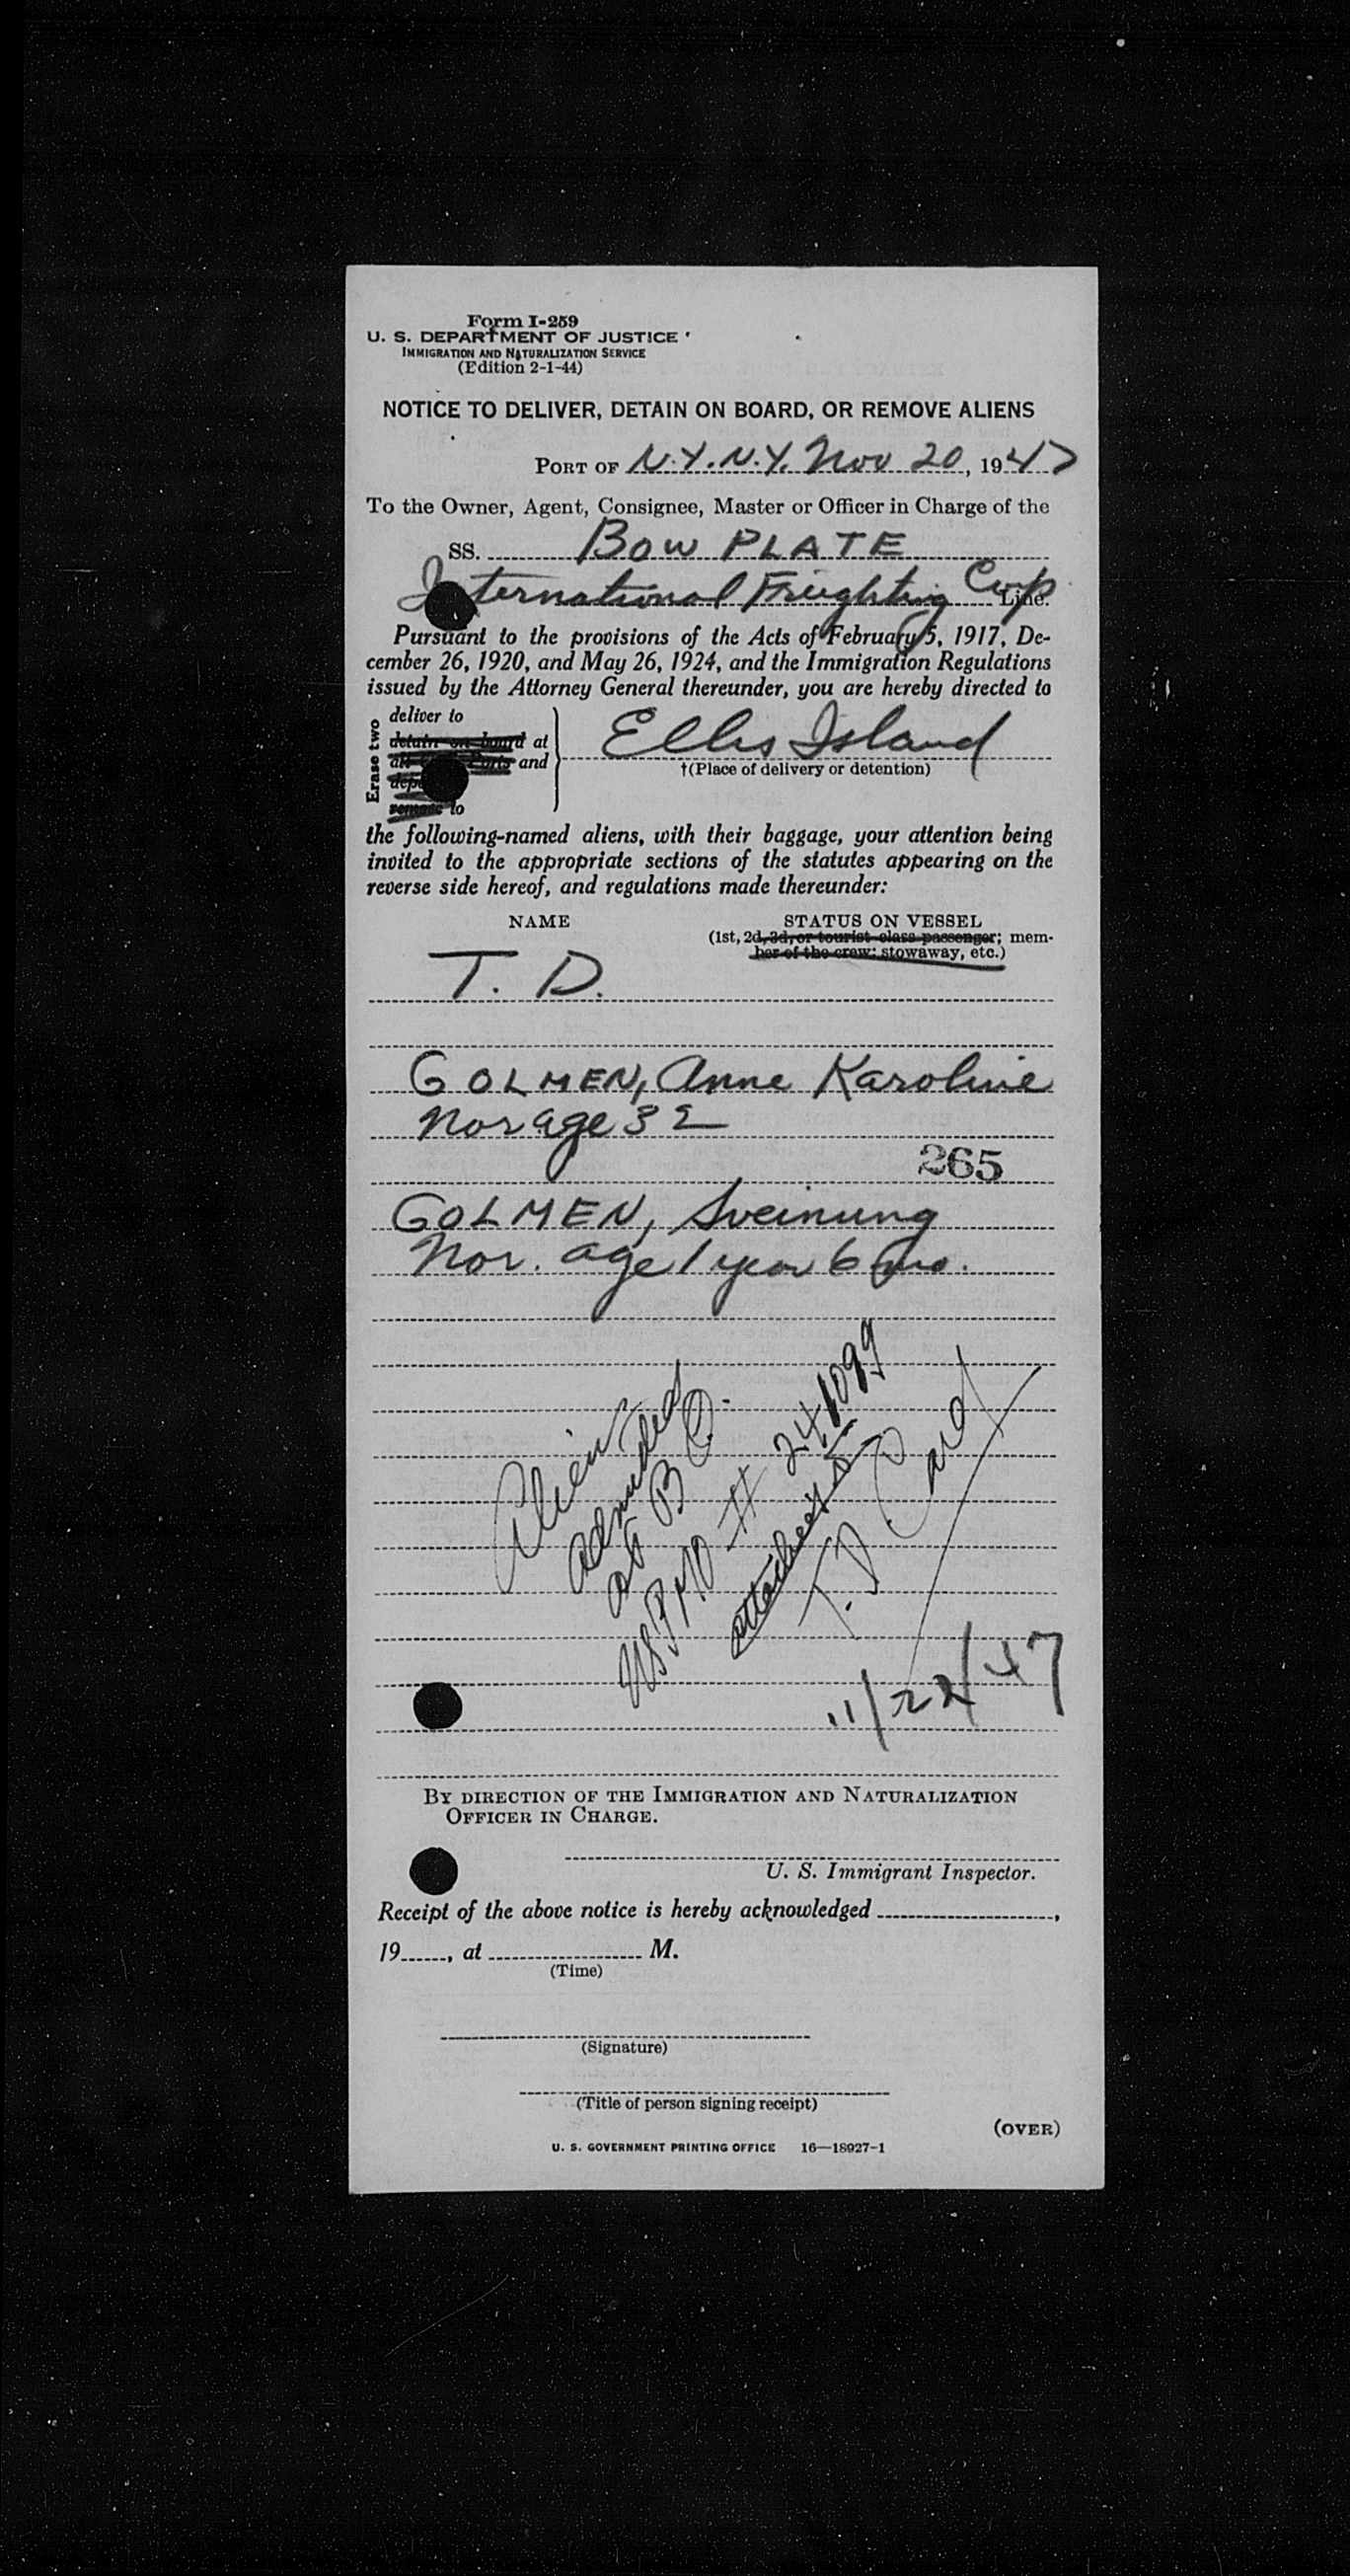 Form I-259
U. S. DEPARTMENT OF JUSTICE
IMMIGRATION AND NATURALIZATION SERVICE
(Edition 2-1-44)
NOTICE TO DELIVER, DETAIN ON BOARD, OR REMOVE ALIENS
PORT OF N.Y. N.Y. Nov 20, 1947
To the Owner, Agent, Consignee, Master or Officer in Charge of the
SS. BOW PLATE
International Freighting Corp Line.
Pursuant to the provisions of the Acts of February 5, 1917, De-
cember 26, 1920, and May 26, 1924, and the Immigration Regulations
issued by the Attorney General thereunder, you are hereby directed to
Erase two
deliver to
detain on board at
Ports and
remove to
Ellis Island
†(Place of delivery or detention)
the following-named aliens, with their baggage, your attention being
invited to the appropriate sections of the statutes appearing on the
reverse side hereof, and regulations made thereunder:
NAME STATUS ON VESSEL
(1st, 2d, 3d, or tourist class passenger; mem-
ber of the crew; stowaway, etc.)
T. D.
GOLMEN, Anne Karoline
Nor age 32
265
GOLMEN, Sveinung
Nor. age 1 year 6 mo.
Alien
admitted
at B O.
# 241099
attached to
T.D. Card
11/22/47
BY DIRECTION OF THE IMMIGRATION AND NATURALIZATION
OFFICER IN CHARGE.
U. S. Immigrant Inspector.
Receipt of the above notice is hereby acknowledged ,
19 , at M.
(Time)
(Signature)
(Title of person signing receipt)
(OVER)
U. S. GOVERNMENT PRINTING OFFICE 16—18927-1